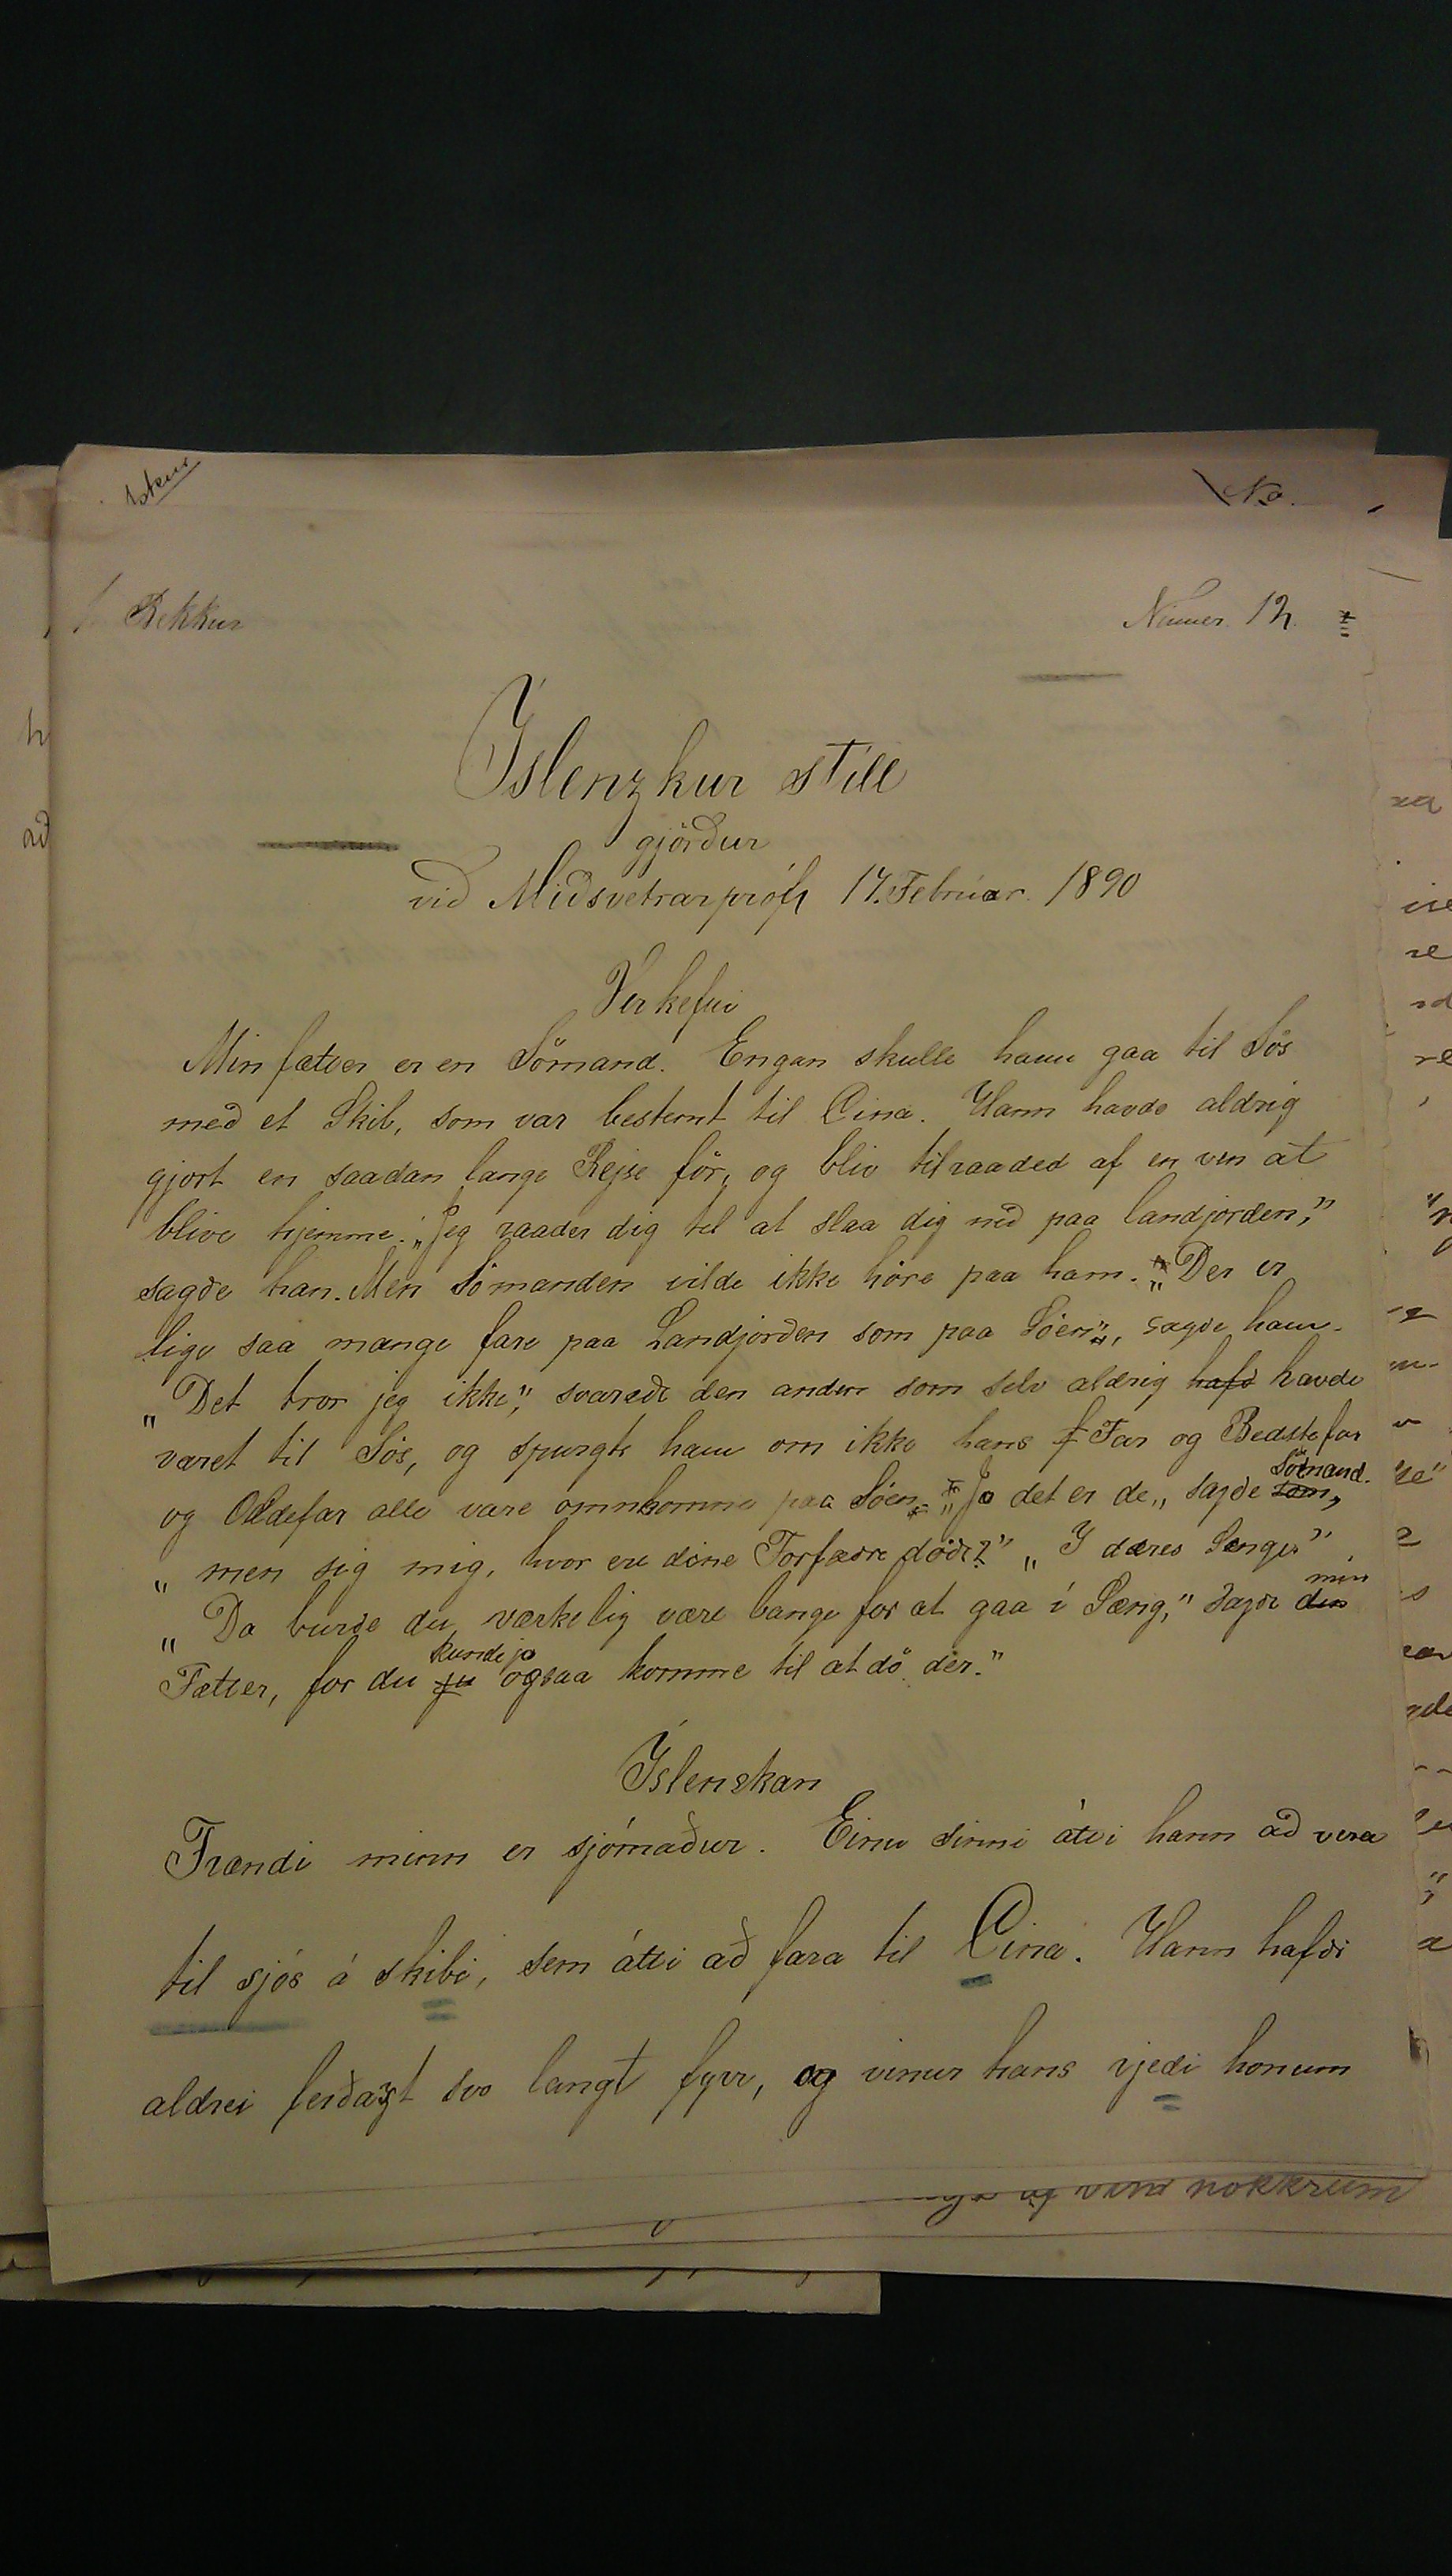 No.
1 Bekkur
Númer. 12.
Íslenzkur stíll
gjörður
við Miðsvetrarpróf 17. Februar. 1890
Verkefni
Min fætter er en Sömand. Engan skulle hann gaa til Sös
með et Skib, som var bestemt til Cina. Hann havde aldrig
gjort en saadan lange Rejse för, og bliv tilraaded af en ven at
blive hjemme. „Jeg raader dig til at slaa dig nið paa landjorden,”
sagðe han. Men Sömanden vilde ikke höre paa ham. „Der er
lige saa mange fare paa Landjorðen som paa Söen”, sagðe hann.
„Det tror jeg ikke,” svareðe den anden som selv aldrig hafð havde
været til Sös, og spurgte ham om ikke hans f Far og Bedstefar
og Oldefar alle være omnkomne paa Söen. „Ja det er de„ sagðe som, Sömand.
„men sig mig, hvor ere dine Forfæðre döðe?” „I deres Senger”
„Da burðe du værkelig være bange for at gaa í Sæng,” sagðe den min
Fætter, for du ju kunde jo ogsaa komme til at dö der.”
Íslenskan
Frændi minn er sjómaður. Einu sinni átti hann að vera
til sjós á skibi, sem átti að fara til Cina. Hann hafði
aldrei ferðazt svo langt fyrr, og vinur hans rjeði honum
vini nokkrum